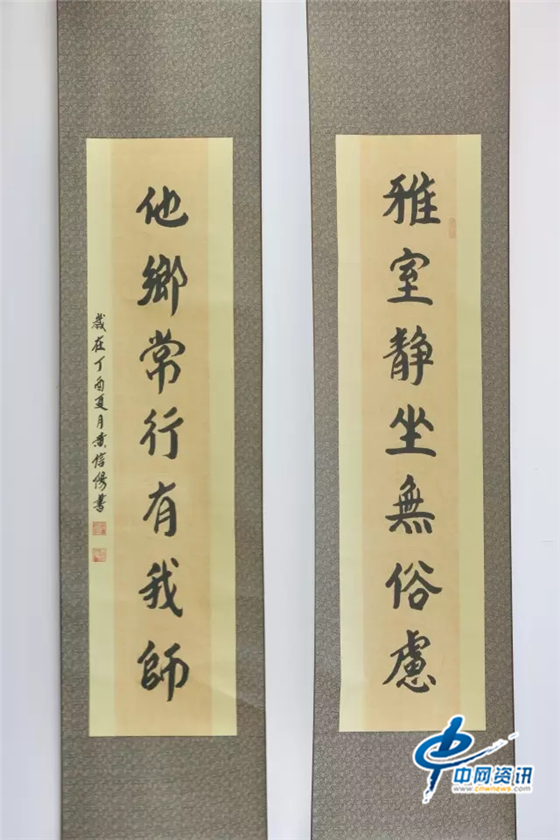 雅室静坐無俗慮
他鄉常行有我師
歲在丁酉夏月黄信陽書
中网资讯
www.cnwnews.com